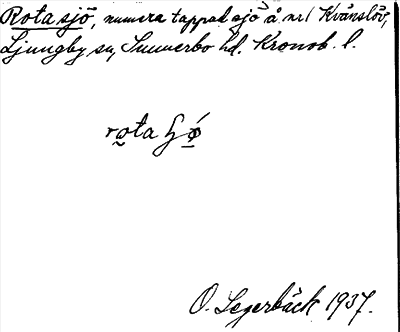 Rota sjö, numera tappad sjö å nr 1 Kvänslöv,
Ljungby sn, Sunnerbo hd. Kronob. l.
rota ɧǿ
O. Legerbäck 1937.